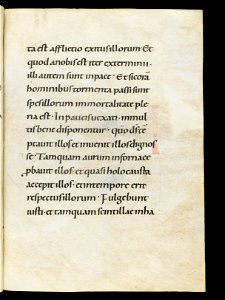 ta est afflictio exitus illorum · Et
quod anobis est iter exterminii ·
illi autem sunt inpace · Et si corā
hominibus tormenta passi sunt
spes illorum immortalitate ple
na est · In paucis uexati · inmul
tis bene disponentur · Quo dſ tē
ptauit illos et inuenit illos dignos
se · Tamquam aurum infornace
ꝓbauit illos · et quasi holocausta
accepit illos · et intempore erit
respectus illorum · Fulgebunt
iusti · et tamquam scintillae inha